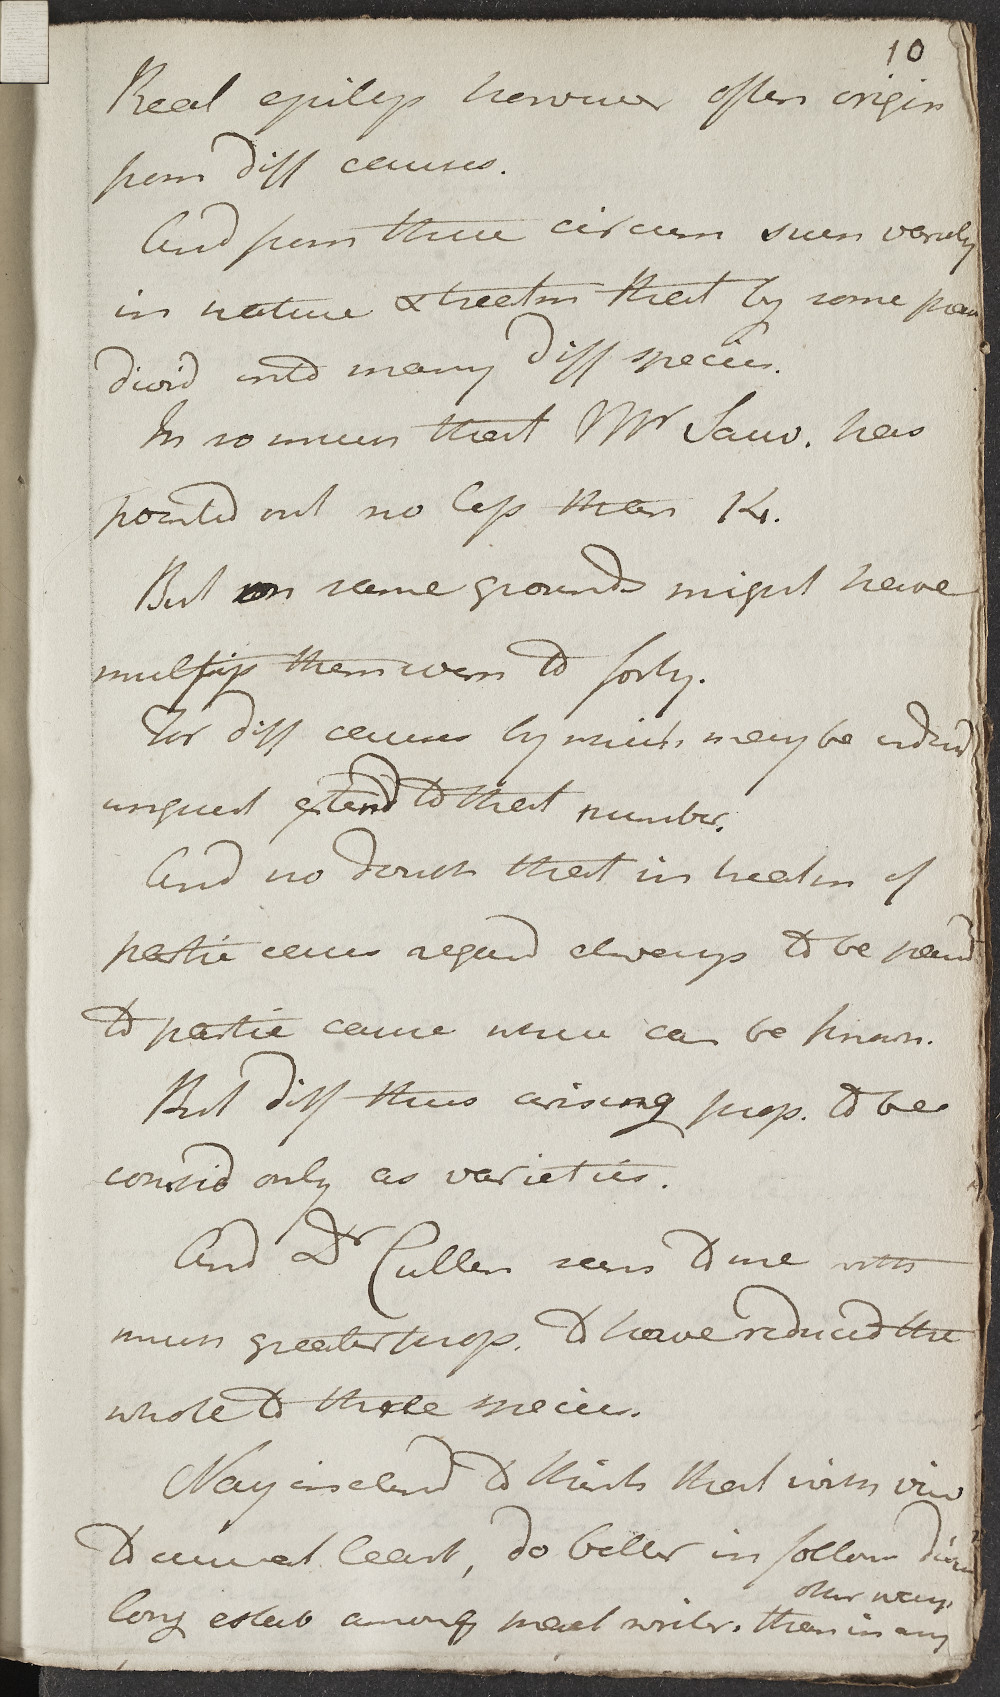 10
Real epilep however often origin
from diff causes.
And from these circum such variety
in nature & treatm that by some
divid into many diff species.
In so much that Mr Sauv. has
pointed out no less than 14.
But on same grounds might have
multip them even to forty.
For diff causes by which may be induc
unquest extend to that number.
And no doubt that in treatm of
partic cases regard always to be paid
to partic cause when can be known.
But diff thus arising prop. to be
consid only as varieties.
And Dr Cullen seems to me with
much greater prop. to have reduced the
whole to three species.
Nay inclend to think that with view
to cure at least, do better in follow
other way.
long estab among pract writer. than in any